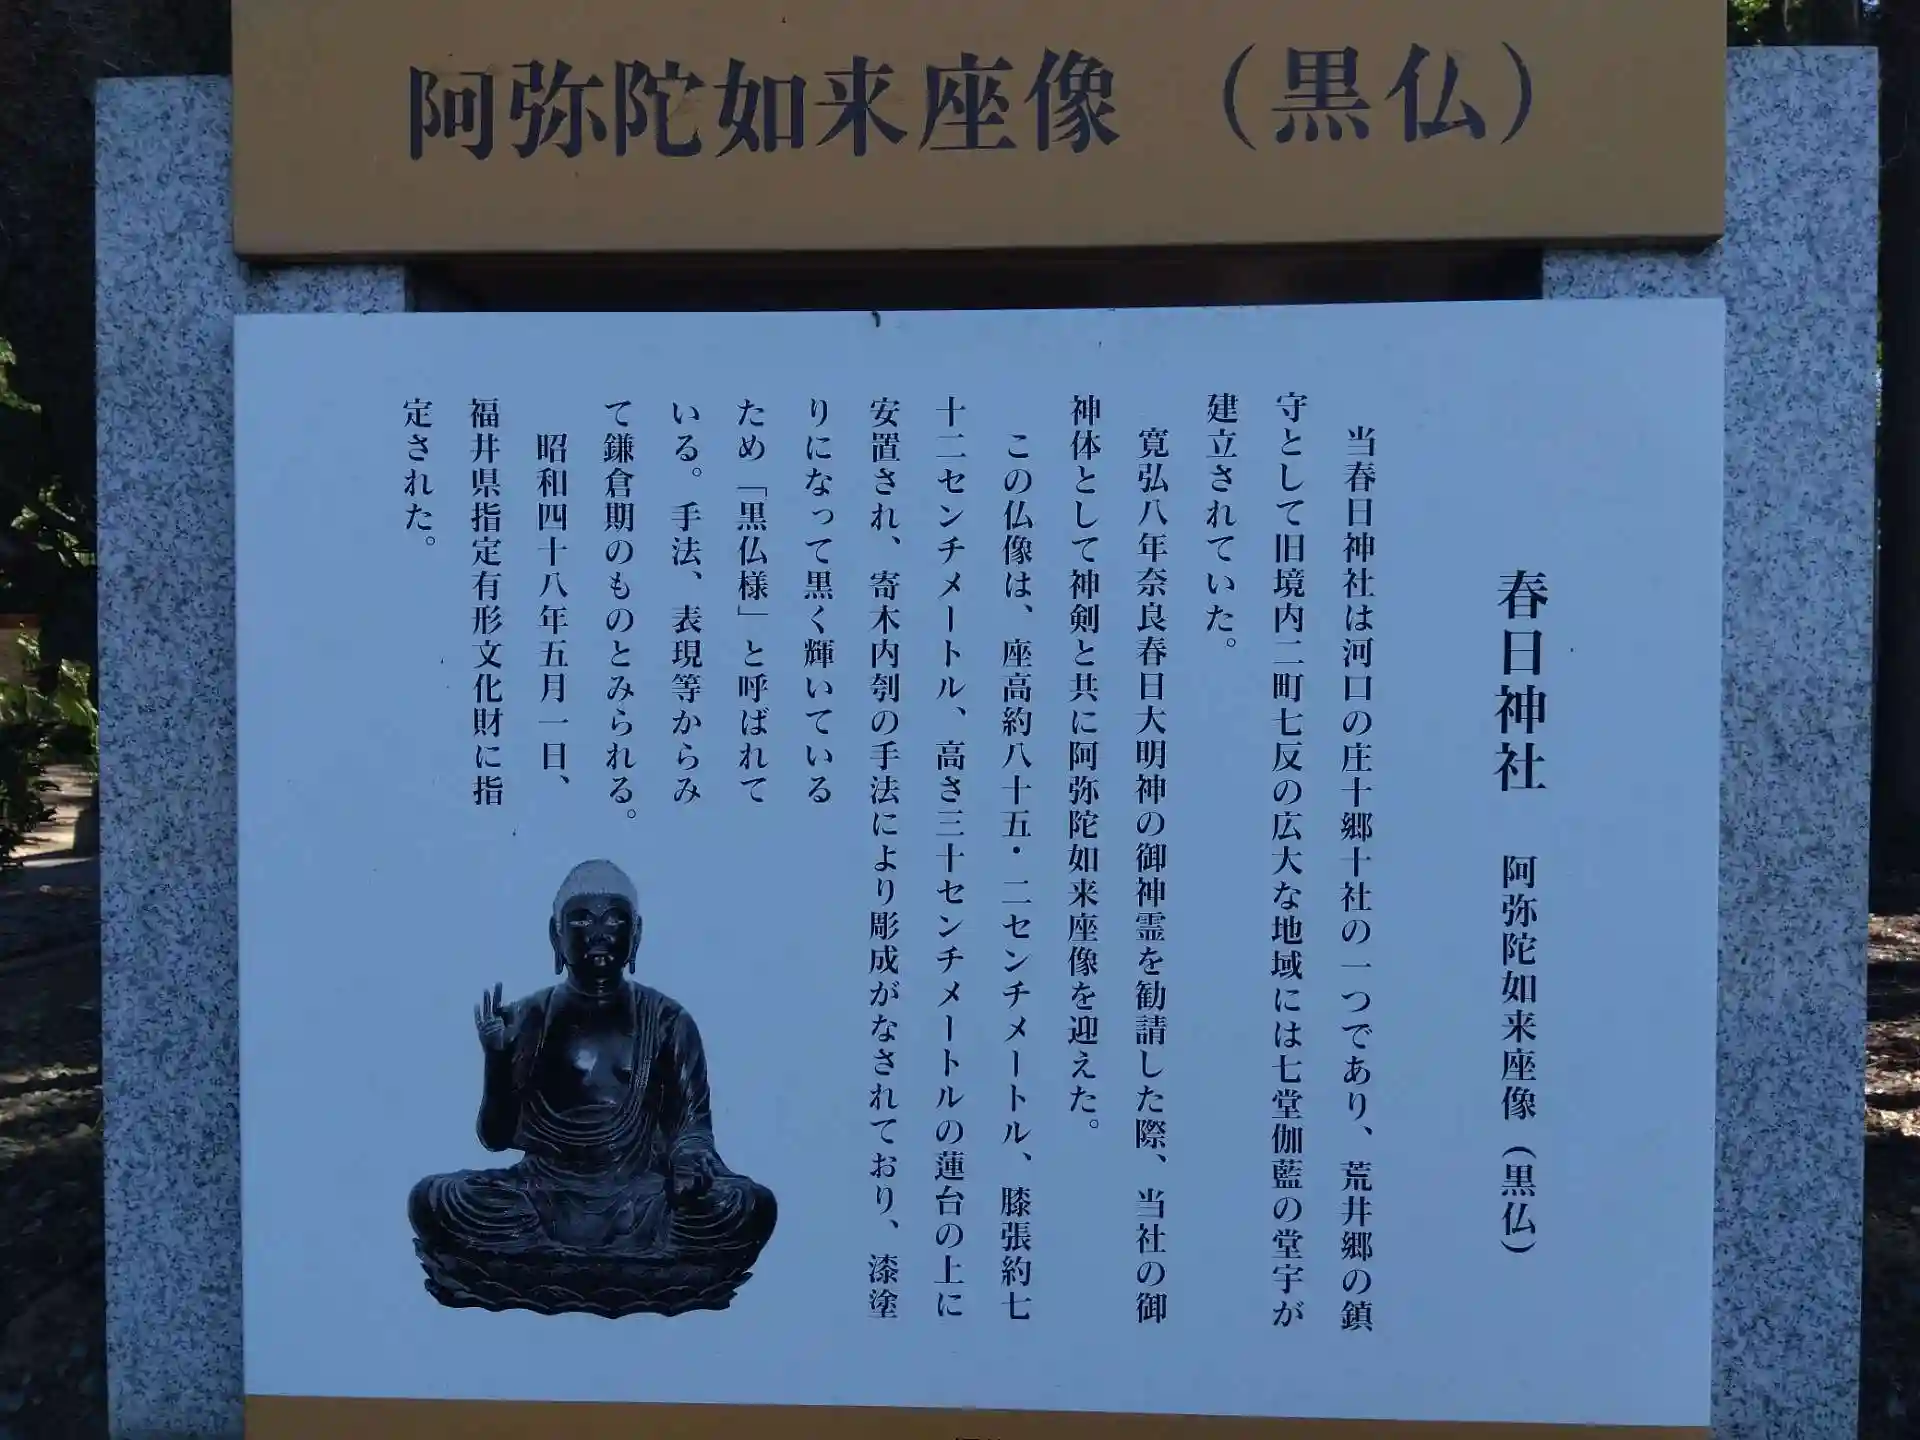 阿弥陀如来座像（黒仏）
春日神社　阿弥陀如来座像（黒仏）
　当春日神社は河口の庄十郷十社の一つであり、荒井郷の鎮
守として旧境内二町七反の広大な地域には七堂伽藍の堂宇が
建立されていた。
　寛弘八年奈良春日大明神の御神霊を勧請した際、当社の御
神体として神剣と共に阿弥陀如来座像を迎えた。
　この仏像は、座高約八十五・二センチメートル、膝張約七
十二センチメートル、高さ三十センチメートルの蓮台の上に
安置され、寄木内刳の手法により彫成がなされており、漆塗
りになって黒く輝いている
ため「黒仏様」と呼ばれて
いる。手法、表現等からみ
て鎌倉期のものとみられる。
　昭和四十八年五月一日、
福井県指定有形文化財に指
定された。